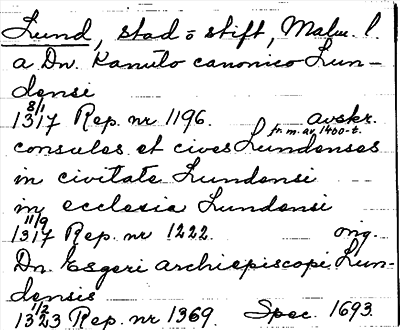 Lund, stad o stift, Malm. l.
a Dn. Kanuto canonico Lun-
densi
8/1
1317 Rep. nr 1196. avskr.
fr. m. av 1400-t.
consules et cives Lundenses
in civitate Lundensi
in ecclesia Lundensi
11/9
1317 Rep. nr 1222. orig.
Dn. Esgeri archiepiscopi Lun-
densis
1/2
1323 Rep. nr 1369. Spec. 1693.